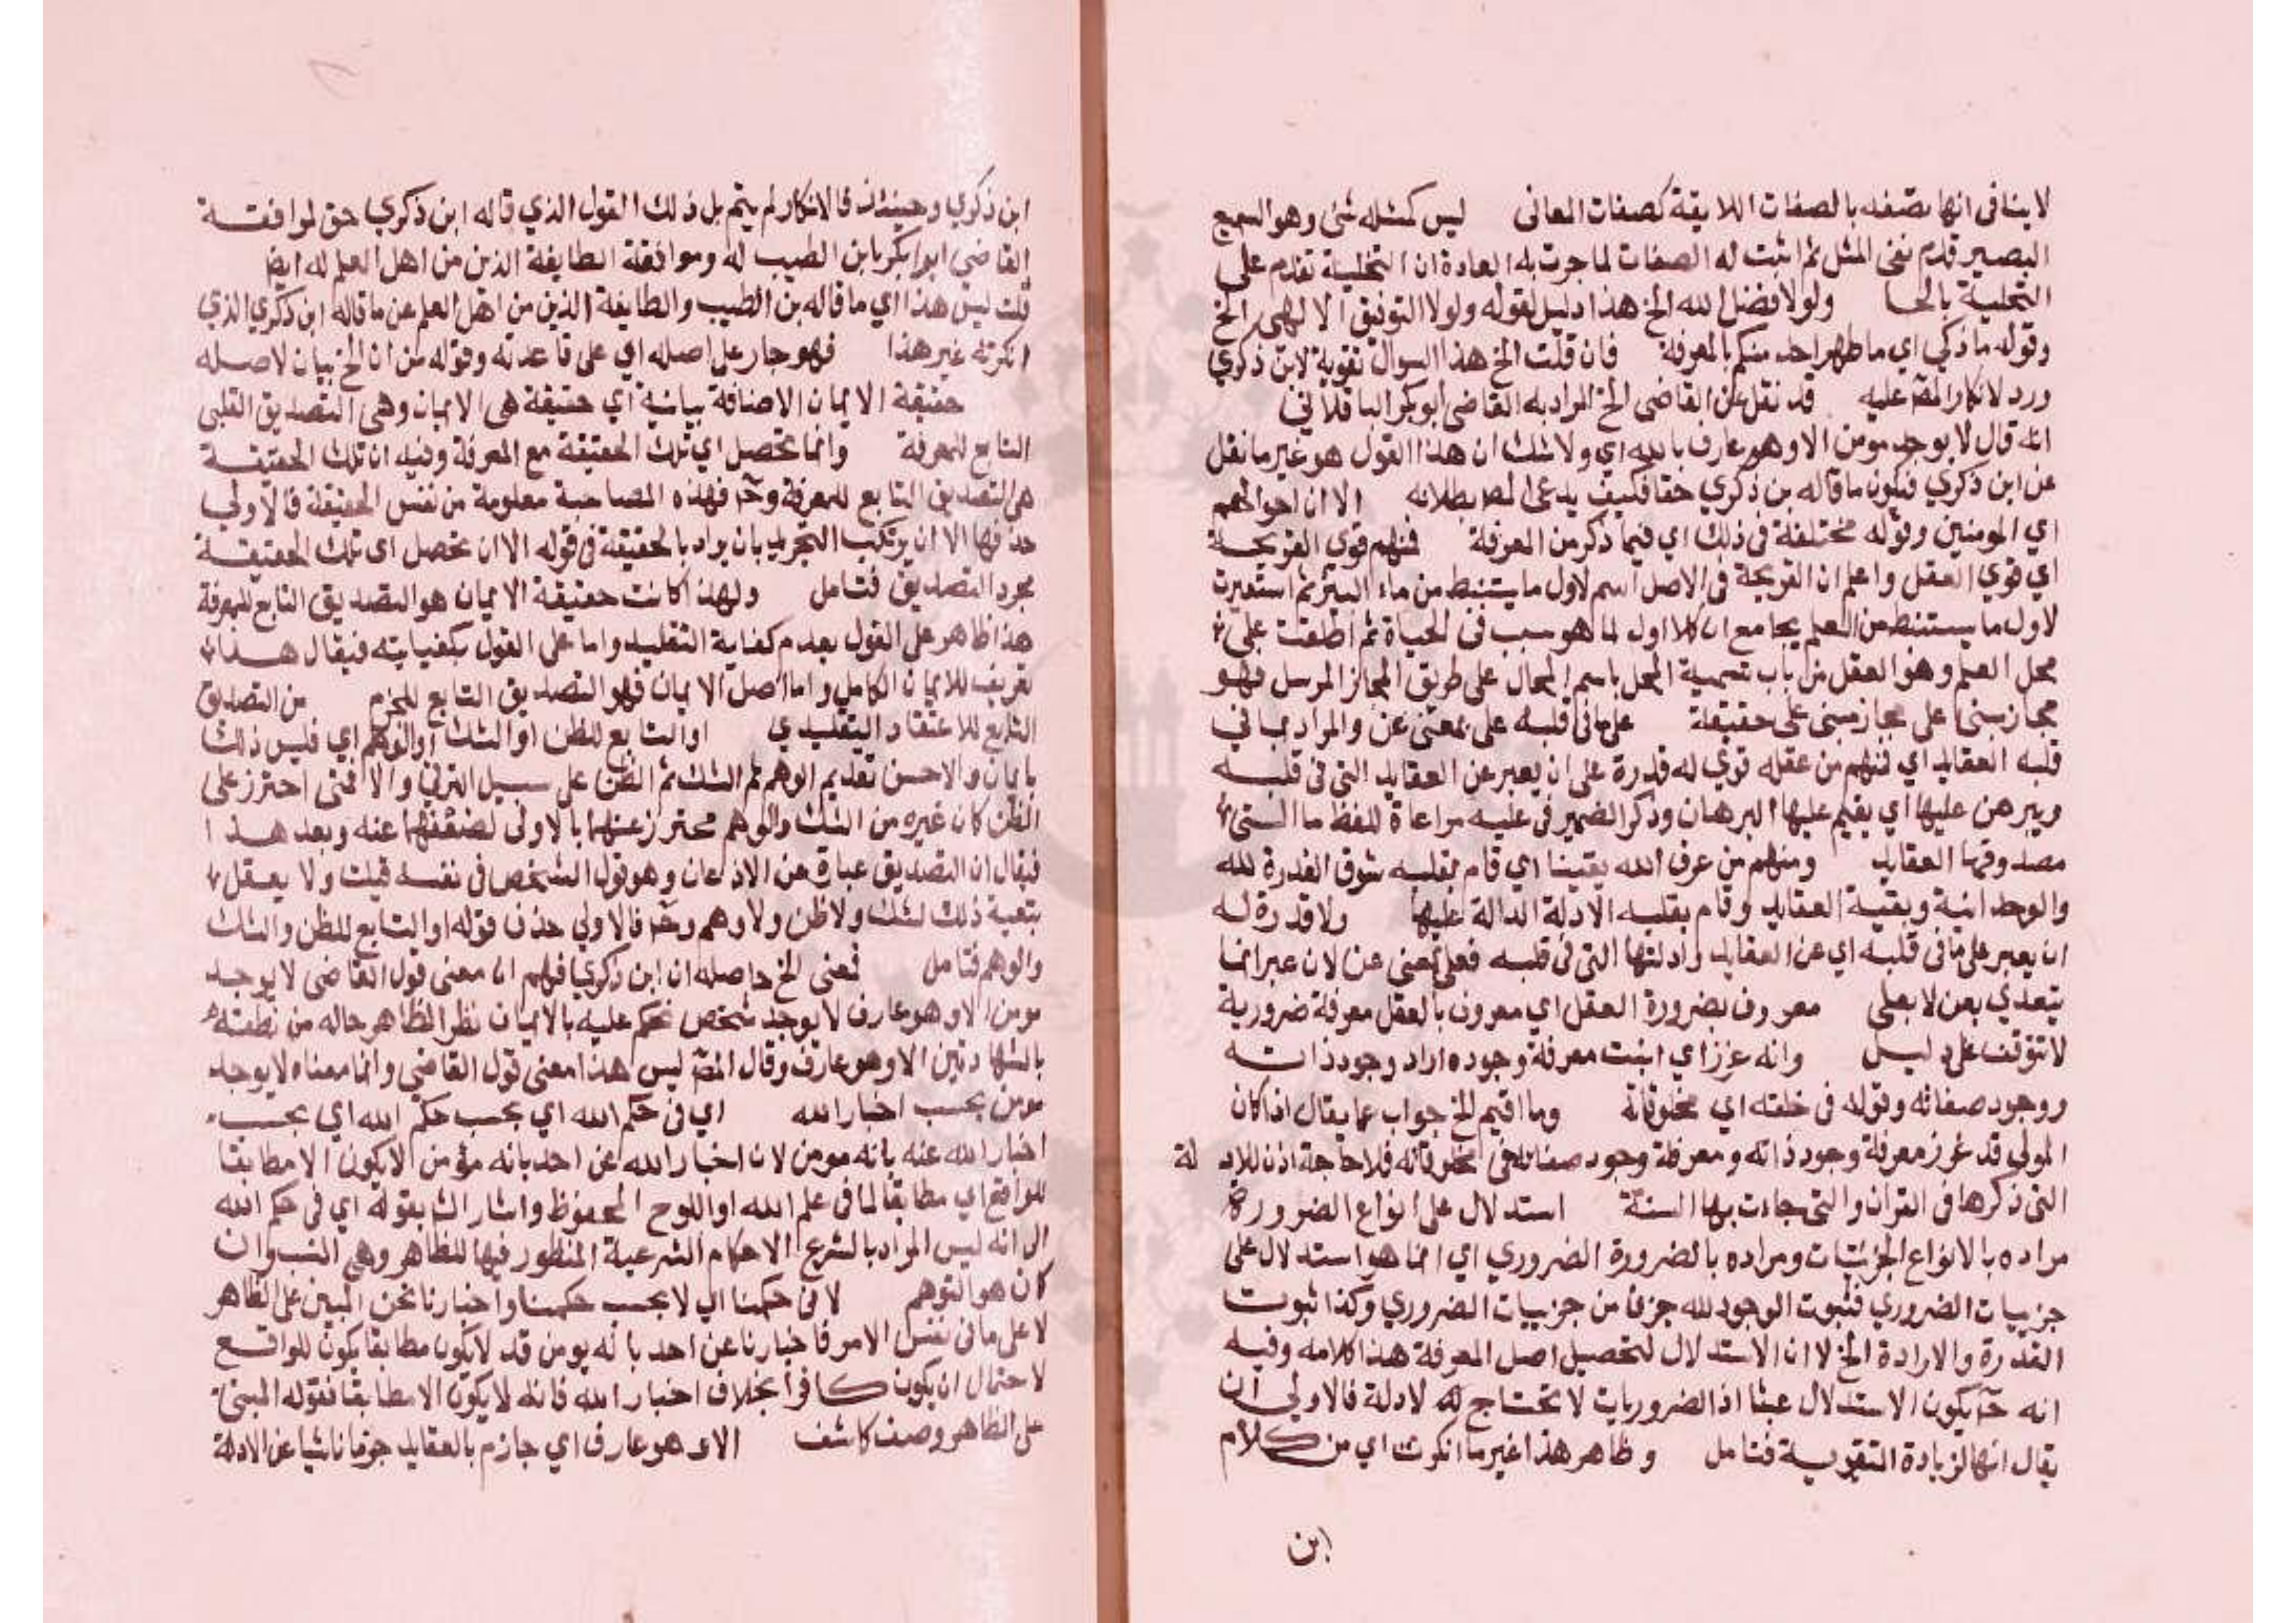 لا ينافى انها تصفه بالصفات اللايقة كصفات المعانى ليس كمثله شئ وهو السميع
البصير قدم نفى المثل ثم اثبت له الصفات لما جرت به العادة ان التخلية تقدم على
التحلية بالحا ولولا فضل الله الخ هذا دليل لقوله ولولا التوفيق الالهى الخ
وقوله ما زكي اي ما طهر احد منكم بالمعرفة فان قلت الخ هذا السوال تقوية لابن ذكري
ورد لانكار المص عليه قد نقل عن القاضى الخ المراد به القاضى أبو بكر الباقلاني
انه قال لا يوجد مومن الا وهو عارف بالله اي ولا شك ان هذا القول هو غير ما نقل
عن ابن ذكري فيكون ما قاله بن ذكري حقا فكيف يدعى المص بطلانه الا ان احوالهم
اي المومنين وقوله مختلفة فى ذلك اي فيما ذكر من المعرفة فمنهم قوي القريحة
اي قوي العقل واعلم ان القريحة فى الاصل اسم لاول ما يستنبط من ماء البئر ثم استعيرت
لاول ما يستنبط من العلم بجامع ان كلا اول لما هو سبب فى الحياة ثم اطلقت على
محل العلم وهو العقل من باب تسمية المحل باسم الحال على طريق المجاز المرسل فهو
مجاز مبنى على مجاز مبنى على حقيقة على ما فى قلبه على بمعنى عن والمراد بما في
قلبه العقايد اي فمنهم من عقله قوي له قدرة على ان يعبر عن العقايد التى فى قلبه
ويبرهن عليها أي يقيم عليها البرهان وذكر الضمير فى عليه مراعاة للفظ ما التى
مصدوقها العقايد ومنهم من عرف الله يقينا اي قام بقلبه ثبوت القدرة لله
والوحدانية وبقية العقايد وقام بقلبه الادلة الدالة عليها ولا قدرة له
ان يعبر على ما فى قلبه اي عن العقايد وادلتها التى فى قلبه فعلى بمعنى عن لان عبر انما
يتعدي بعن لا بعلى معروف بضرورة العقل اي معروف بالعقل معرفة ضرورية
لا تتوقف على دليل وانه غرز اي اثبت معرفة وجوده اراد وجود ذاته
ووجود صفاته وقوله فى خلقته اي مخلوقاته وما اقيم الخ جواب عما يقال اذا كان
المولى قد غرز معرفة وجود ذاته ومعرفة وجود صفاته فى مخلوقاته فلا حاجة اذن للاد لة
التى ذكرها فى القران والتى جات بها السنة استدلال على انواع الضرورة
مراده بالانواع الجزئيات ومراده بالضرورة الضروري اي انما هو استدلال على
جزييات الضروري فثبوت الوجود لله جزئ من جزييات الضروري وكذا ثبوت
القدرة والارادة الخ لا ان الاستدلال لتحصيل اصل المعرفة هذا كلامه وفيه
انه ح يكون الاستدلال عبثا اذ الضروريات لا تحتاج له لادلة فالاولى ان
يقال انها لزيادة التقوية فتامل وظاهر هذا غير ما انكرت اي من كلام
ابن
ابن ذكري وحينئذ فالانكار لم يتم بل ذلك القول الذي قاله ابن ذكري حق لموافقة
القاضي ابوا بكر بابن الطيب له وموافقة الطايفة الذين من اهل العلم له ايض
قلت ليس هذا اي ما قاله بن الطيب والطايفة الذين من اهل العلم عن ما قاله ابن ذكري الذي
انكرته غير هذا فهو جار على اصله اي على قاعدته وقوله من ان الخ بيان لاصله
حقيقة الايمان الاضافة بيانية أي حقيقة هى الايمان وهى التصديق القلبى
التابع للمعرفة وانما تحصل اي تلك الحقيقة مع المعرفة وفيه ان تلك الحقيقة
هى التصديق التابع للمعرفة وح فهذه المصاحبة معلومة من نفس الحقيقة فالاولى
حذفها الا ان يرتكب التجريد بان يراد بالحقيقة فى قوله الا ان تحصل اى تلك الحقيقة
مجرد التصديق فتامل ولهذا كانت حقيقة الايمان هو التصديق التابع للمعرفة
هذا ظاهر على القول بعدم كفاية التقليد واما على القول بكفايته فيقال هذا
تعريف للايمان الكامل واما اصل الايمان فهو التصديق التابع للجزم من التصديق
التابع للاعتقاد التقليدي او التابع للظن او الشك او الوهم اي فليس ذلك
بايمان والاحسن تقديم الوهم ثم الشك ثم الظن على سبيل الترقي والا فمتى احترز على
الظن كان غيره من الشك والوهم محترز عنهما بالاولى لضعفهما عنه وبعد هذا
فيقال ان التصديق عبارة عن الاذعان وهو قول الشخص فى نفسه قبلت ولا يعقل
تبعية ذلك لشك ولا ظن ولا وهم وح فالاولى حذف قوله او التابع للظن والشك
والوهم فتامل فمعنى الخ حاصله ان ابن ذكري فهم ان معنى قول القاضى لا يوجد
مومن الا وهو عارف لا يوجد شخص نحكم عليه بالايمان نظر الظاهر حاله من نطقه
بالشهادتين الا وهو عارف وقال المص ليس هذا معنى قول القاضي وانما معناه لا يوجد
مومن بحسب اخبار الله اي فى حكم الله اي بحسب حكم الله اي بحسب
اخبار الله عنه بانه مومن لان اخبار الله عن احد بانه مؤمن لا يكون الا مطابقا
للواقع اي مطابقا لما فى علم الله او اللوح المحفوظ واشار الش بقوله اي فى حكم الله
الى انه ليس المراد بالشرع الاحكام الشرعية المنظور فيها للظاهر وهى النسب وان
كان هو المتوهم لا فى حكمنا اي لا بحسب حكمنا واخبارنا نحن المبين على الظاهر
لا على ما فى نفس الامر فاخبارنا عن احد بانه يومن قد لا يكون مطابقا يكون للواقع
لاحتمال ان يكون كافرا بخلاف اخبار الله فانه لا يكون الا مطابقا فقوله المبنى
على الظاهر وصف كاشف الا وهو عارف اي جازم بالعقايد جزما ناشيا عن الادلة